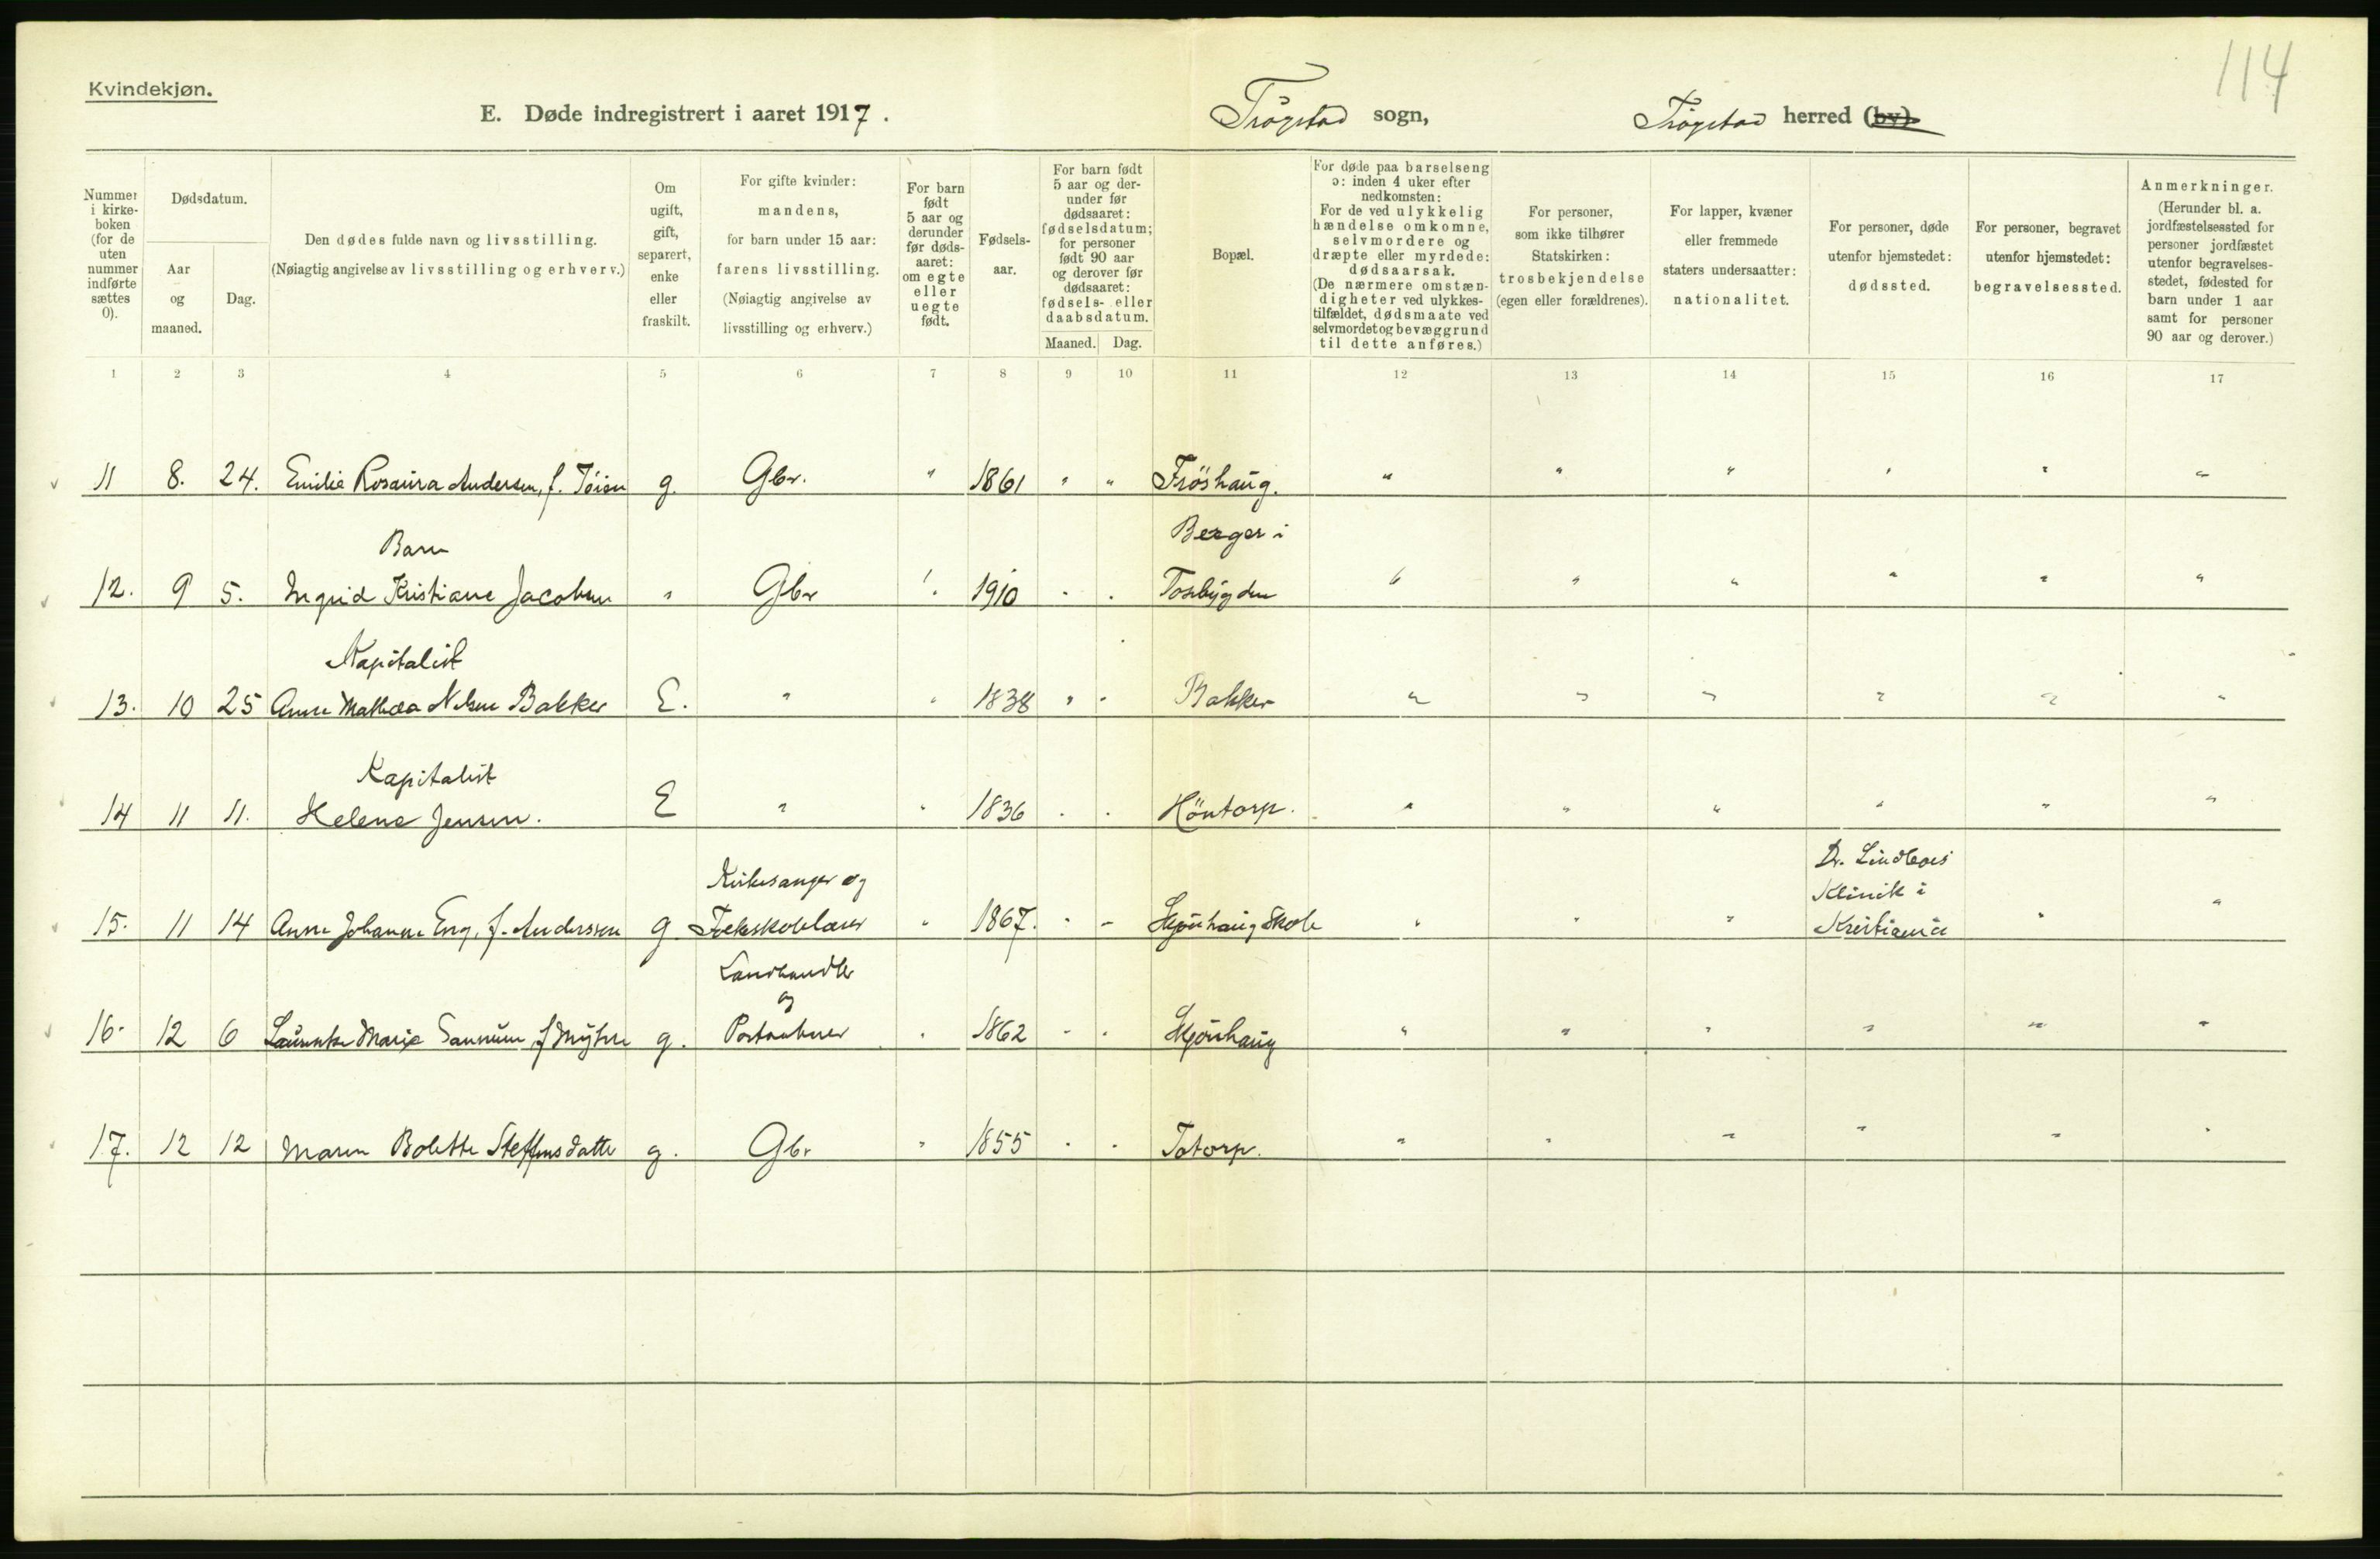 114
Kvindekjøn.
E. Døde indregistrert i aaret 1917.
Trøgstad sogn,
Trøgstad herred (by)
Nummer i kirkeboken (for de uten nummer indførte sættes 0).
Dødsdatum.
Aar og maaned.
Dag.
Den dødes fulde navn og livsstilling.
(Nøiagtig angivelse av livsstilling og erhverv.)
Om ugift, gift, separert, enke eller fraskilt.
For gifte kvinder: mandens, for barn under 15 aar: farens livsstilling. (Nøiagtig angivelse av livsstilling og erhverv.)
For barn født 5 aar og derunder før dødsaaret: om egte eller uegte født.
Fødselsaar.
For barn født 5 aar og derunder før dødsaaret: fødselsdatum; for personer født 90 aar og derover før dødsaaret: fødsels- eller daabsdatum.
Maaned. Dag.
Bopæl.
For døde paa barselseng ɔ: inden 4 uker efter nedkomsten: For de ved ulykkelig hændelse omkomne, selvmordere og dræpte eller myrdede: dødsaarsak. (De nærmere omstændigheter ved ulykkestilfældet, dødsmaate ved selvmordet og bevæggrund til dette anføres.)
For personer, som ikke tilhører Statskirken: trosbekjendelse (egen eller forældrenes).
For lapper, kvæner eller fremmede staters undersaatter: nationalitet.
For personer, døde utenfor hjemstedet: dødssted.
For personer, begravet utenfor hjemstedet: begravelsessted.
Anmerkninger. (Herunder bl. a. jordfæstelsessted for personer jordfæstet utenfor begravelsesstedet, fødested for barn under 1 aar samt for personer 90 aar og derover.)
1 2 3 4 5 6 7 8 9 10 11 12 13 14 15 16 17
11 8. 24. Emilie Rosaura Andersen, f. g. Gbr. " 1861 " " Frøshaug. " " " " " "
Barn
Berger i
12. 9 5. Ingrid Kristiane Jacobsen " Gbr " 1910 " " " " " " " "
Kapitalist
13. 10 25 Anne Mathea Nilsen Bakker E. " " 1838 " " Bakker " " " " " "
Kapitalist
14 11 11. Helene Jensen. E " " 1836 " " Höntorp. " " " " " "
Kirkesanger og
Dr.
Klinik i
15. 11 14 Anne Johanne Eng, f. Anderssen g. Folkeskolelærer " 1867. " " Skjønhaug Skole " " " Kristiania " "
Landhandler
og
16. 12 6 Marie Sannum, f Myhre g. Postaabner " 1862 " " Skjønhaug " " " " " "
17. 12 12 Maren Bolette Steffensdatter g. Gbr " 1855 " " Totorp. " " " " " "